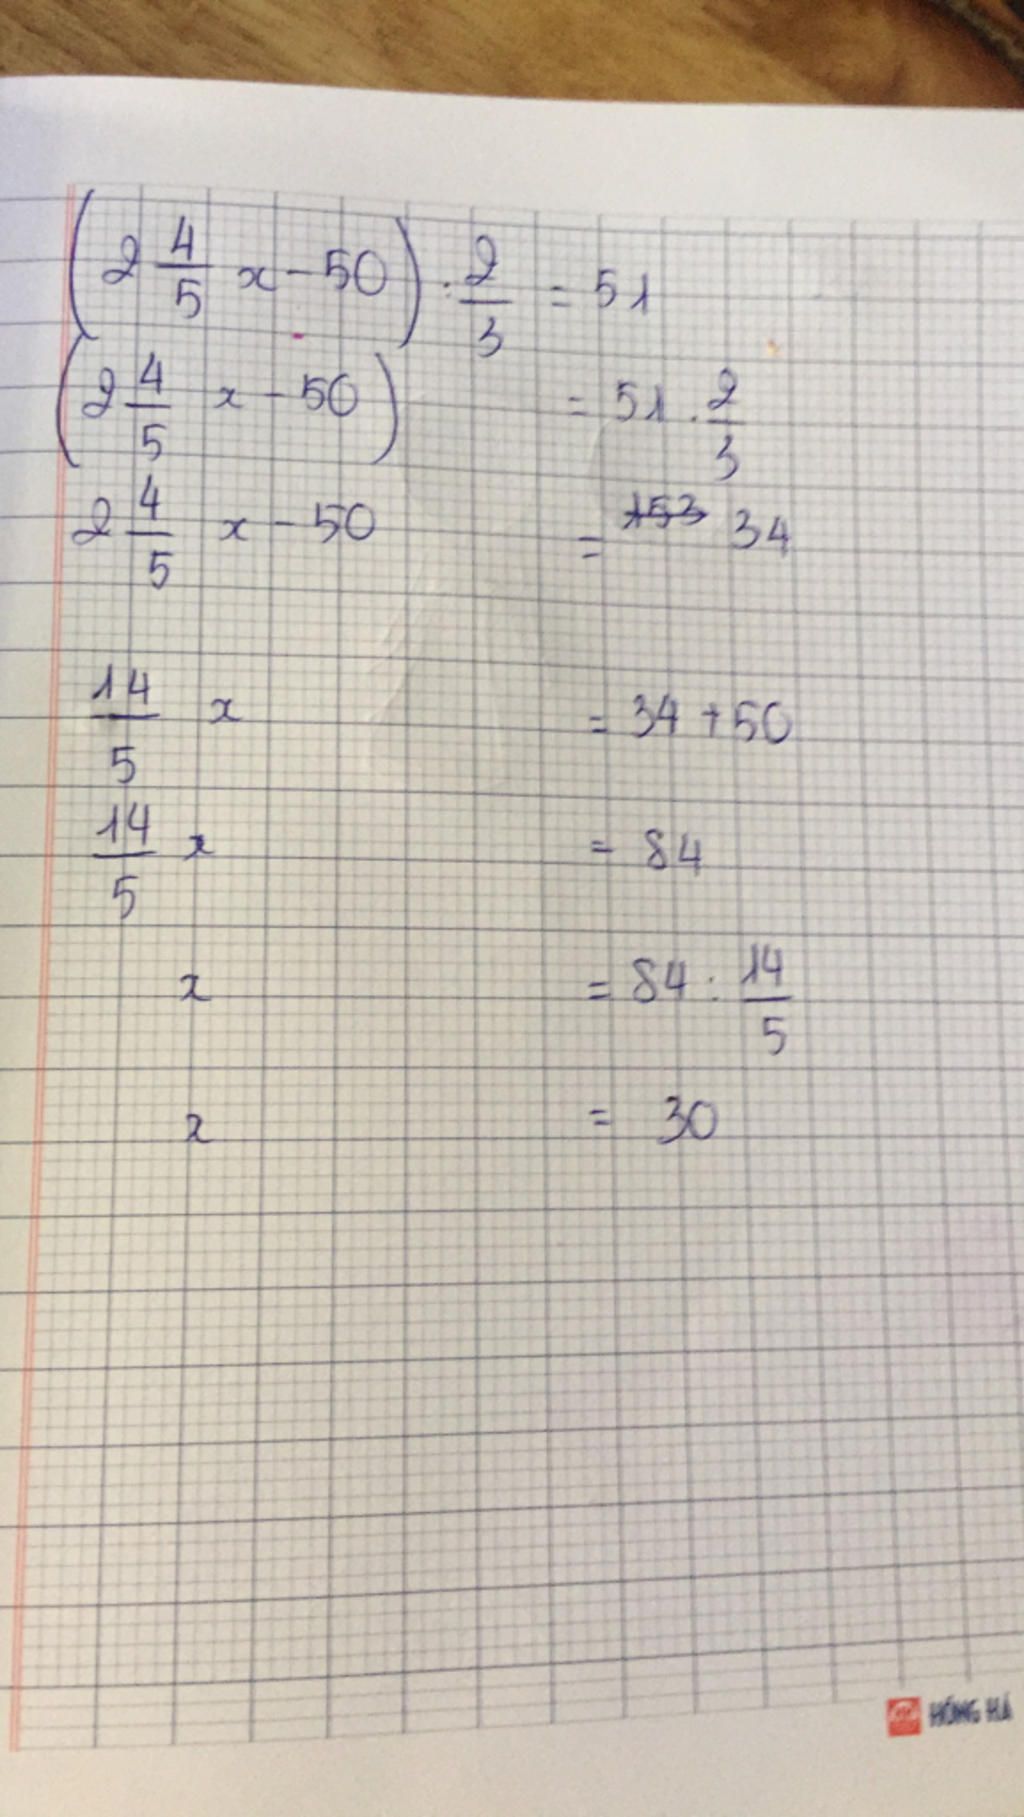 (2 4/5 x - 50) : 2/3 = 51
(2 4/5 x - 50) = 51 . 2/3
2 4/5 x - 50 = 153 34
14/5 x = 34 + 50
14/5 x = 84
x = 84 : 14/5
x = 30
HỒNG HÀ